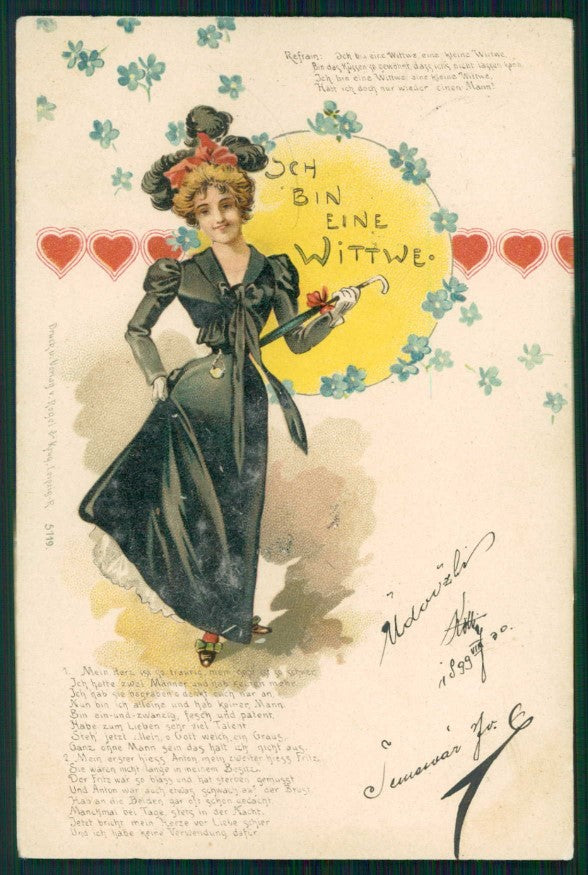 Refrain: Ich bin eine Wittwe eine kleine Wittwe
Bin das Küssen so gewöhnt dass ichs nicht lassen kann
Ich bin eine Wittwe eine kleine Wittwe,
Hätt ich doch nur wieder einen Mann!
ICH
BIN
EINE
WITTWE.
Druck u. Verlag v. Leipzig R.
5119
1. Mein Herz ist so traurig, mein ist so schwer
Ich hatte zwei Männer und hab keinen mehr
Ich hab sie begraben's denkt euch nur an
Nun bin ich alleine und hab keinen Mann
Bin ein-und-zwanzig, fesch und patent,
Habe zum Lieben sehr viel Talent
Steh' jetzt allein, o Gott welch ein Graus,
Ganz ohne Mann sein das halt ich nicht aus.
2. Mein erster hiess Anton, mein zweiter hiess Fritz,
Sie waren nicht lange in meinem Besitz,
Der Fritz war so blass und hat sterben gemusst
Und Anton war auch etwas schwach auf der Brust.
Hab an die Beiden gar oft schon gedacht,
Manchmal bei Tage, stets in der Nacht,
Jetzt bricht mein Herze vor Liebe schier
Und ich habe keine Verwendung dafür.
Üdvözli
1899 VIII 30.
Temesvár